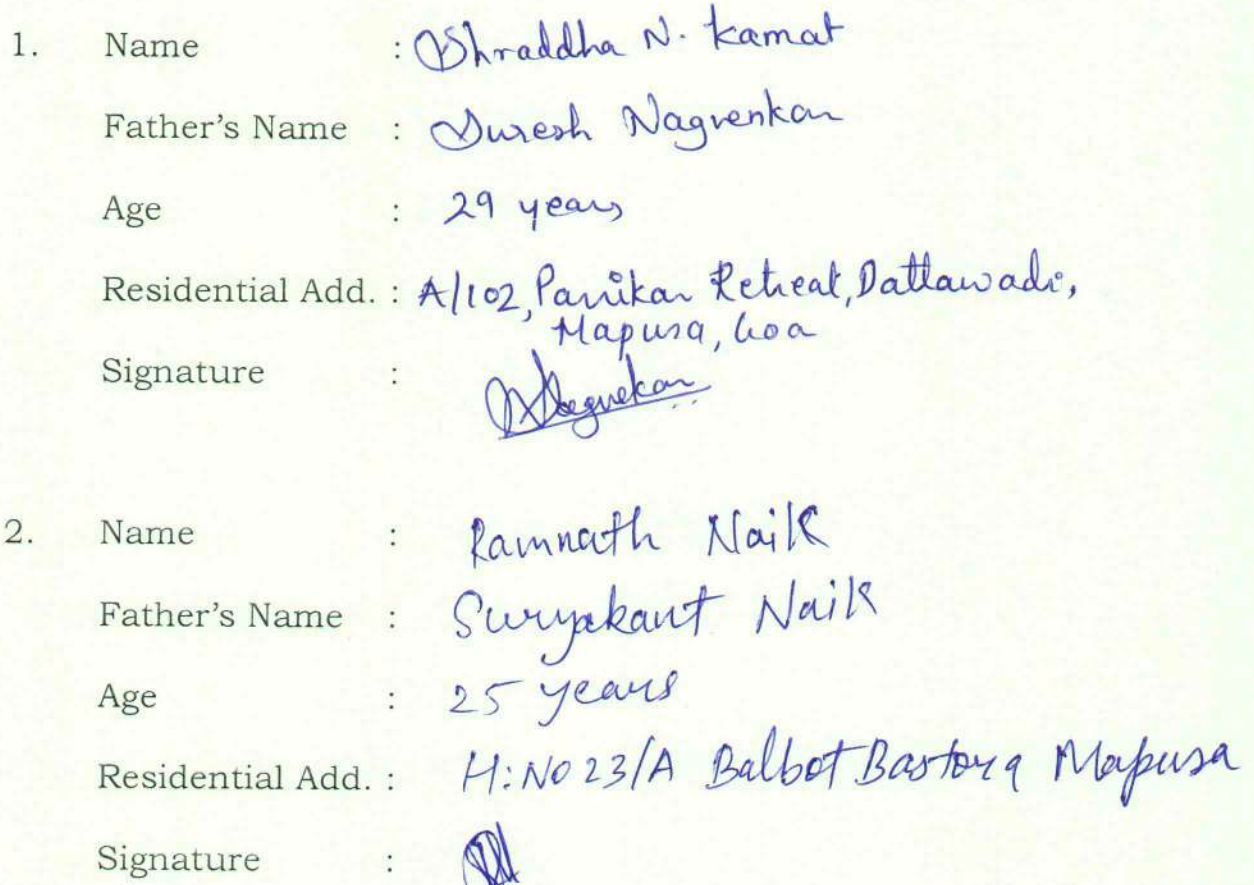 1. Name : Shraddha N. Kamat
Father's Name : Suresh Nagvenkar
Age : 29 years
Residential Add. : A/102, Parrikar Retreat, Dattawadi,
Mapusa, Goa
Signature :
2. Name : Ramnath Naik
Father's Name : Suryakant Naik
Age : 25 years
Residential Add. : H:NO 23/A Balbot Bastora Mapusa
Signature :